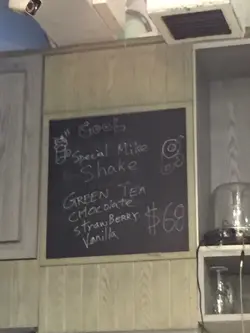 Special Milk
Shake
GREEN TEA
CHOCOLATE
STRAWBERRY
Vanilla
$68